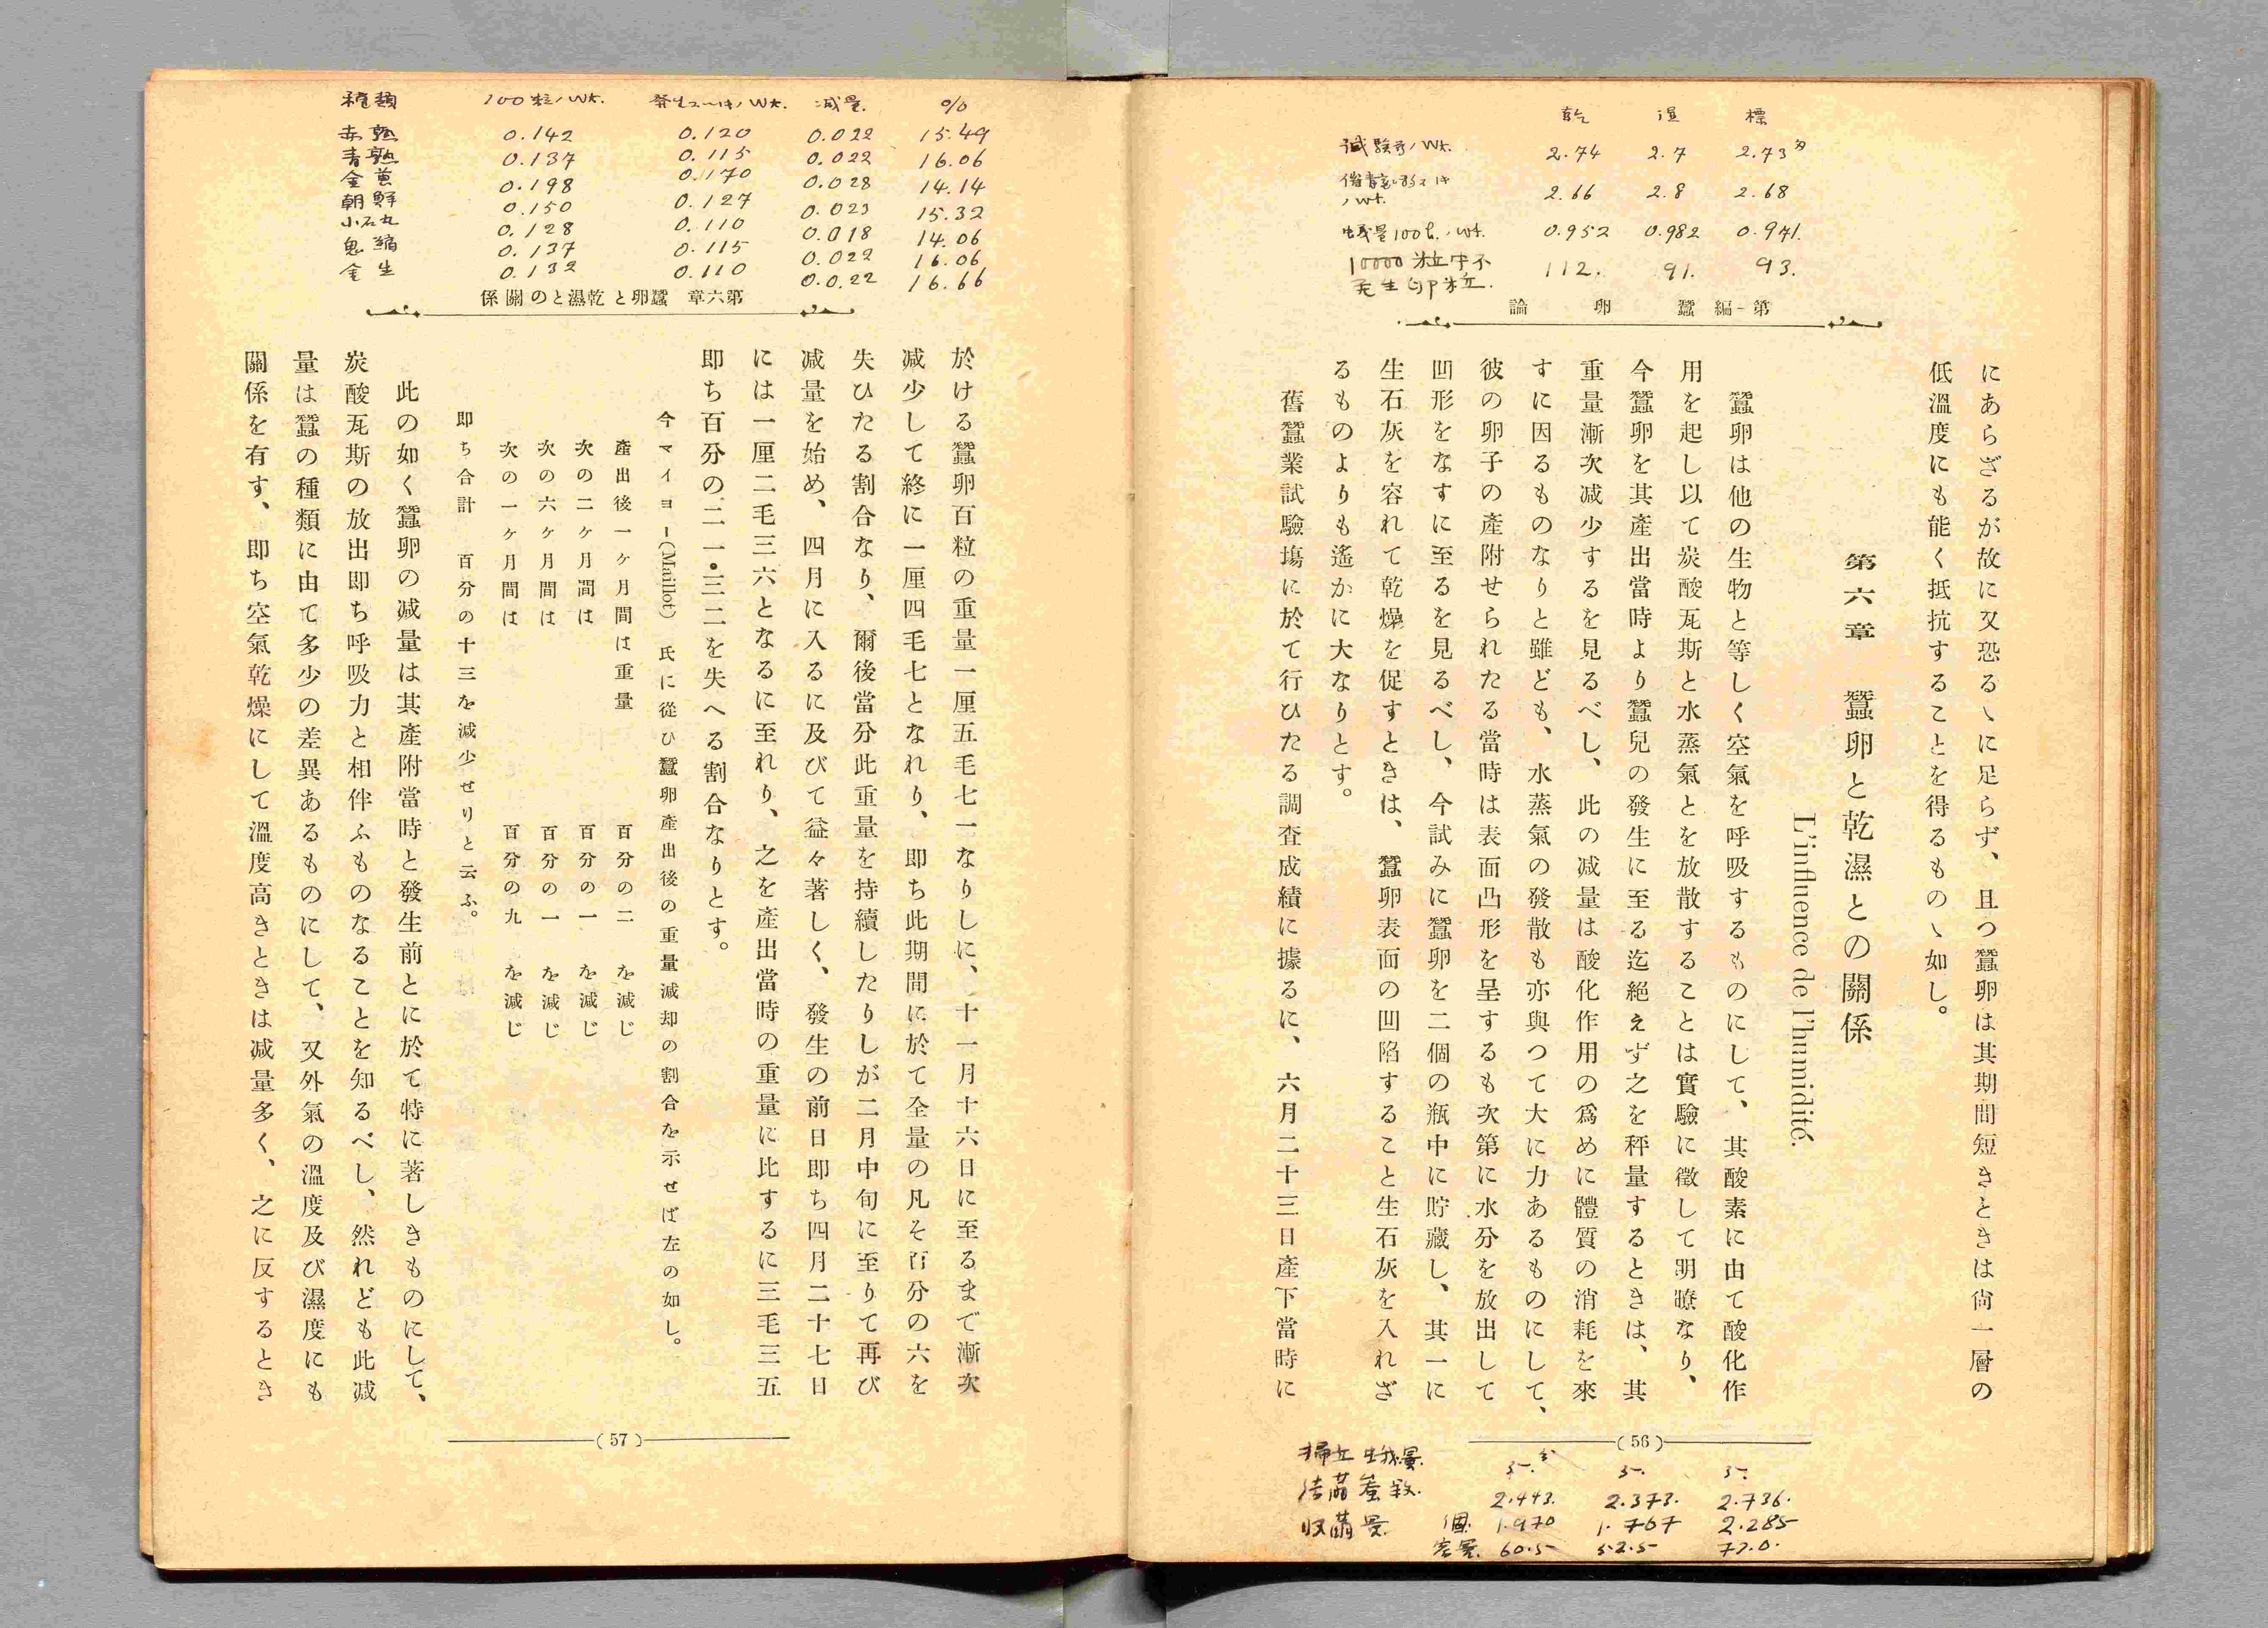 乾 湿 標
試驗前ノWt. 2.74 2.7 2.73
2.66 2.8 2.68
蛾量100匕ノWt. 0.952 0.982 0.941.
10000粒中不 112. 91. 93.
発生卵粒.
論 卵 蠶 編一第
にあらざるが故に又恐るヽに足らず、且つ蠶卵は其期間短きときは尙一層の
低溫度にも能く抵抗することを得るものヽ如し。
第六章 蠶卵と乾濕との關係
L'influence de l'humidité.
蠶卵は他の生物と等しく空氣を呼吸するものにして、其酸素に由て酸化作
用を起し以て炭酸瓦斯と水蒸氣とを放散することは實驗に徵して明瞭なり、
今蠶卵を其產出當時より蠶兒の發生に至る迄絕えず之を秤量するときは、其
重量漸次减少するを見るべし、此の减量は酸化作用の爲めに體質の消耗を來
すに因るものなりと雖ども、水蒸氣の發散も亦與つて大に力あるものにして、
彼の卵子の產附せられたる當時は表面凸形を呈するも次第に水分を放出して
凹形をなすに至るを見るべし、今試みに蠶卵を二個の瓶中に貯藏し、其一に
生石灰を容れて乾燥を促すときは、蠶卵表面の凹陷すること生石灰を入れざ
るものよりも遙かに大なりとす。
舊蠶業試驗塲に於て行ひたる調査成績に據るに、六月二十三日產下當時に
(56)
掃立蟻量. 5. 5. 5.
結繭蚕数. 2.443. 2.373. 2.736.
収繭量 個. 1.970 1.767 2.285
60.5 52.5 77.0.
種類 100粒ノWt. 発生スヘキノWt. 減量. %
赤熟 0.142 0.120 0.022 15.49
青熟 0.137 0.115 0.022 16.06
金黄 0.198 0.170 0.028 14.14
朝鮮 0.150 0.127 0.023 15.32
小石丸 0.128 0.110 0.018 14.06
鬼縮 0.137 0.115 0.022 16.06
金生 0.132 0.110 0.0.22 16.66
係關のと濕乾と卵蠶 章六第
於ける蠶卵百粒の重量一厘五毛七一なりしに、十一月十六日に至るまで漸次
减少して終に一厘四毛七となれり、即ち此期間に於て全量の凡そ百分の六を
失ひたる割合なり、爾後當分此重量を持續したりしが二月中旬に至りて再び
减量を始め、四月に入るに及びて益々著しく、發生の前日即ち四月二十七日
には一厘二毛三六となるに至れり、之を產出當時の重量に比するに三毛三五
即ち百分の二一・三二を失へる割合なりとす。
今マイヨー(Maillot)氏に從ひ蠶卵產出後の重量減却の割合を示せば左の如し。
產出後一ヶ月間は重量 百分の二 を減じ
次の二ヶ月間は 百分の一 を減じ
次の六ヶ月間は 百分の一 を減じ
次の一ヶ月間は 百分の九 を減じ
即ち合計 百分の十三を減少せりと云ふ。
此の如く蠶卵の减量は其產附當時と發生前とに於て特に著しきものにして、
炭酸瓦斯の放出即ち呼吸力と相伴ふものなることを知るべし、然れども此减
量は蠶の種類に由て多少の差異あるものにして、又外氣の溫度及び濕度にも
關係を有す、即ち空氣乾燥にして溫度高きときは减量多く、之に反するとき
(57)